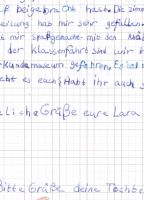 beigebracht hast. Die zimm
hat mir sehr gefallen.
mir spaßgemacht mit den Mäd
der Klassenfahrt sind wir
kundemuseum gefahren. Es hat
es euch? Habt ihr auch s
liche Grüße eure Lara
Bitte Grüße deine Tochte